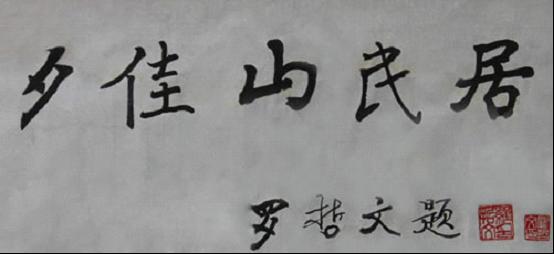 夕佳山民居
罗哲文题